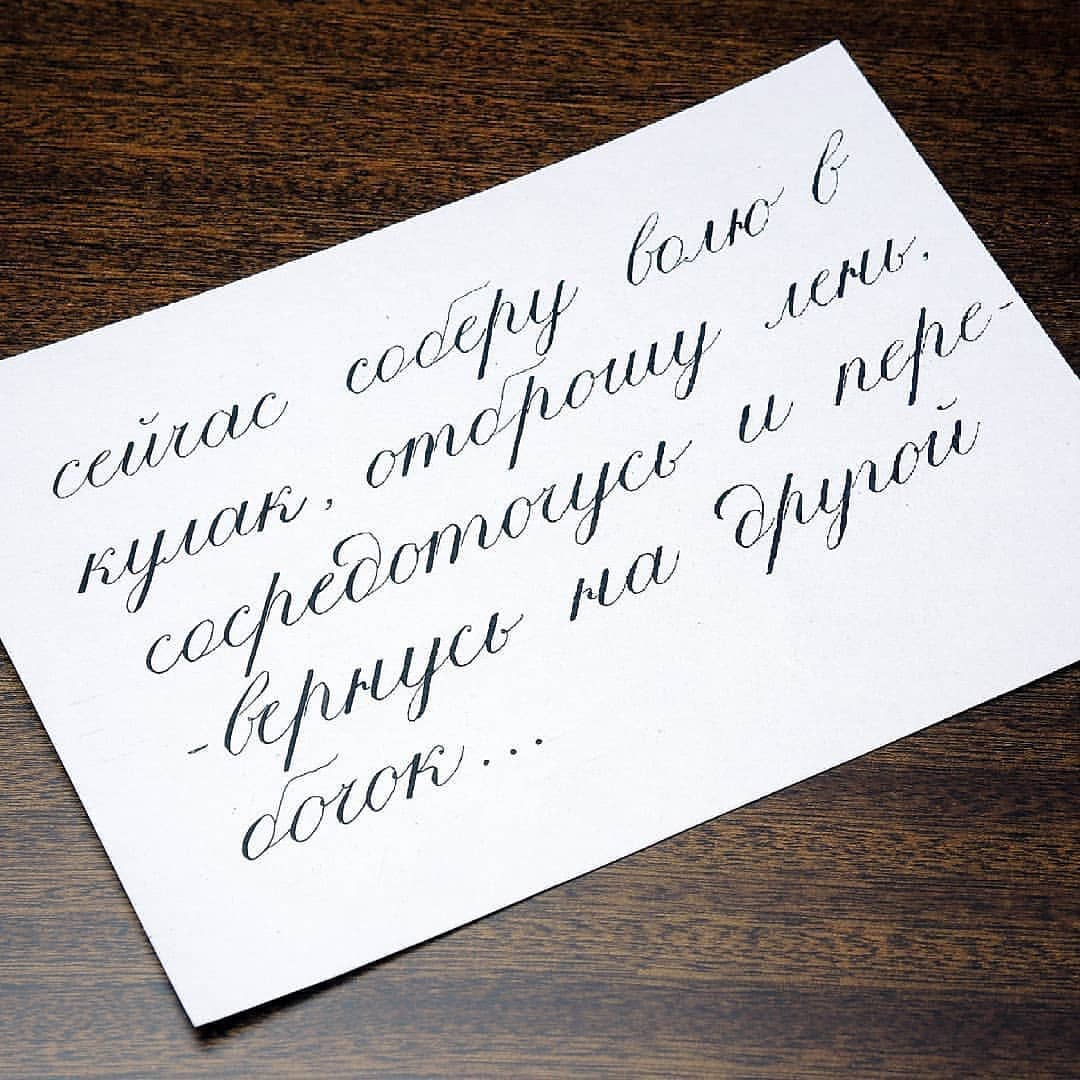 сейчас соберу волю в
кулак, отброшу лень,
сосредоточусь и пере-
-вернусь на другой
бочок...